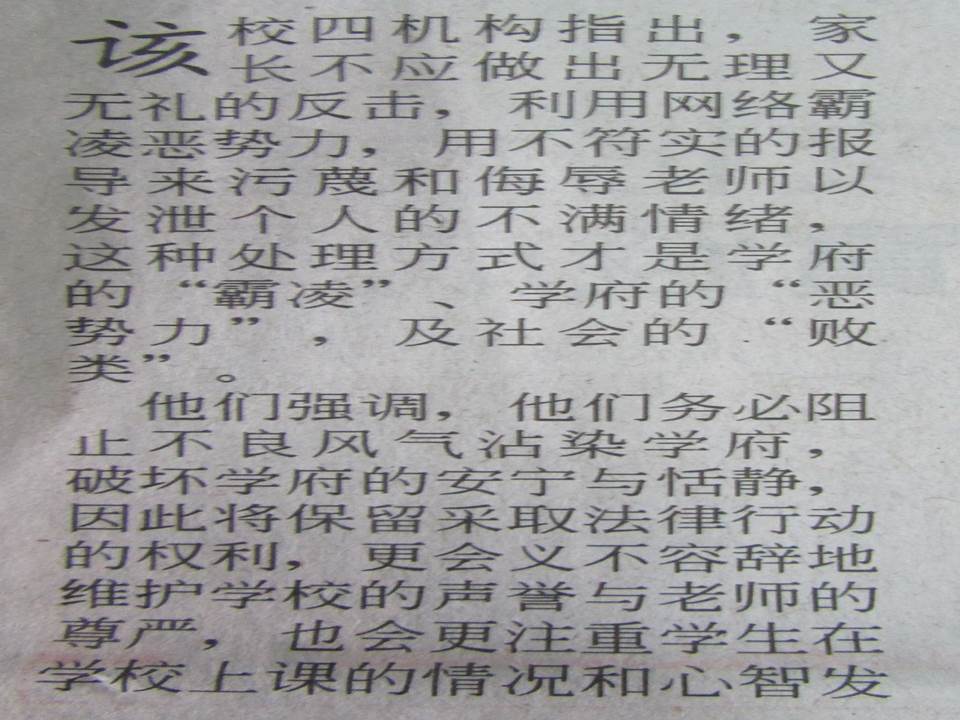 该校四机构指出，家
长不应做出无理又
无礼的反击，利用网络霸
凌恶势力，用不符实的报
导来污蔑和侮辱老师以
发泄个人的不满情绪，
这种处理方式才是学府
的“霸凌”、学府的“恶
势力”，及社会的“败
类”。
他们强调，他们务必阻
止不良风气沾染学府，
破坏学府的安宁与恬静，
因此将保留采取法律行动
的权利，更会义不容辞地
维护学校的声誉与老师的
尊严，也会更注重学生在
学校上课的情况和心智发